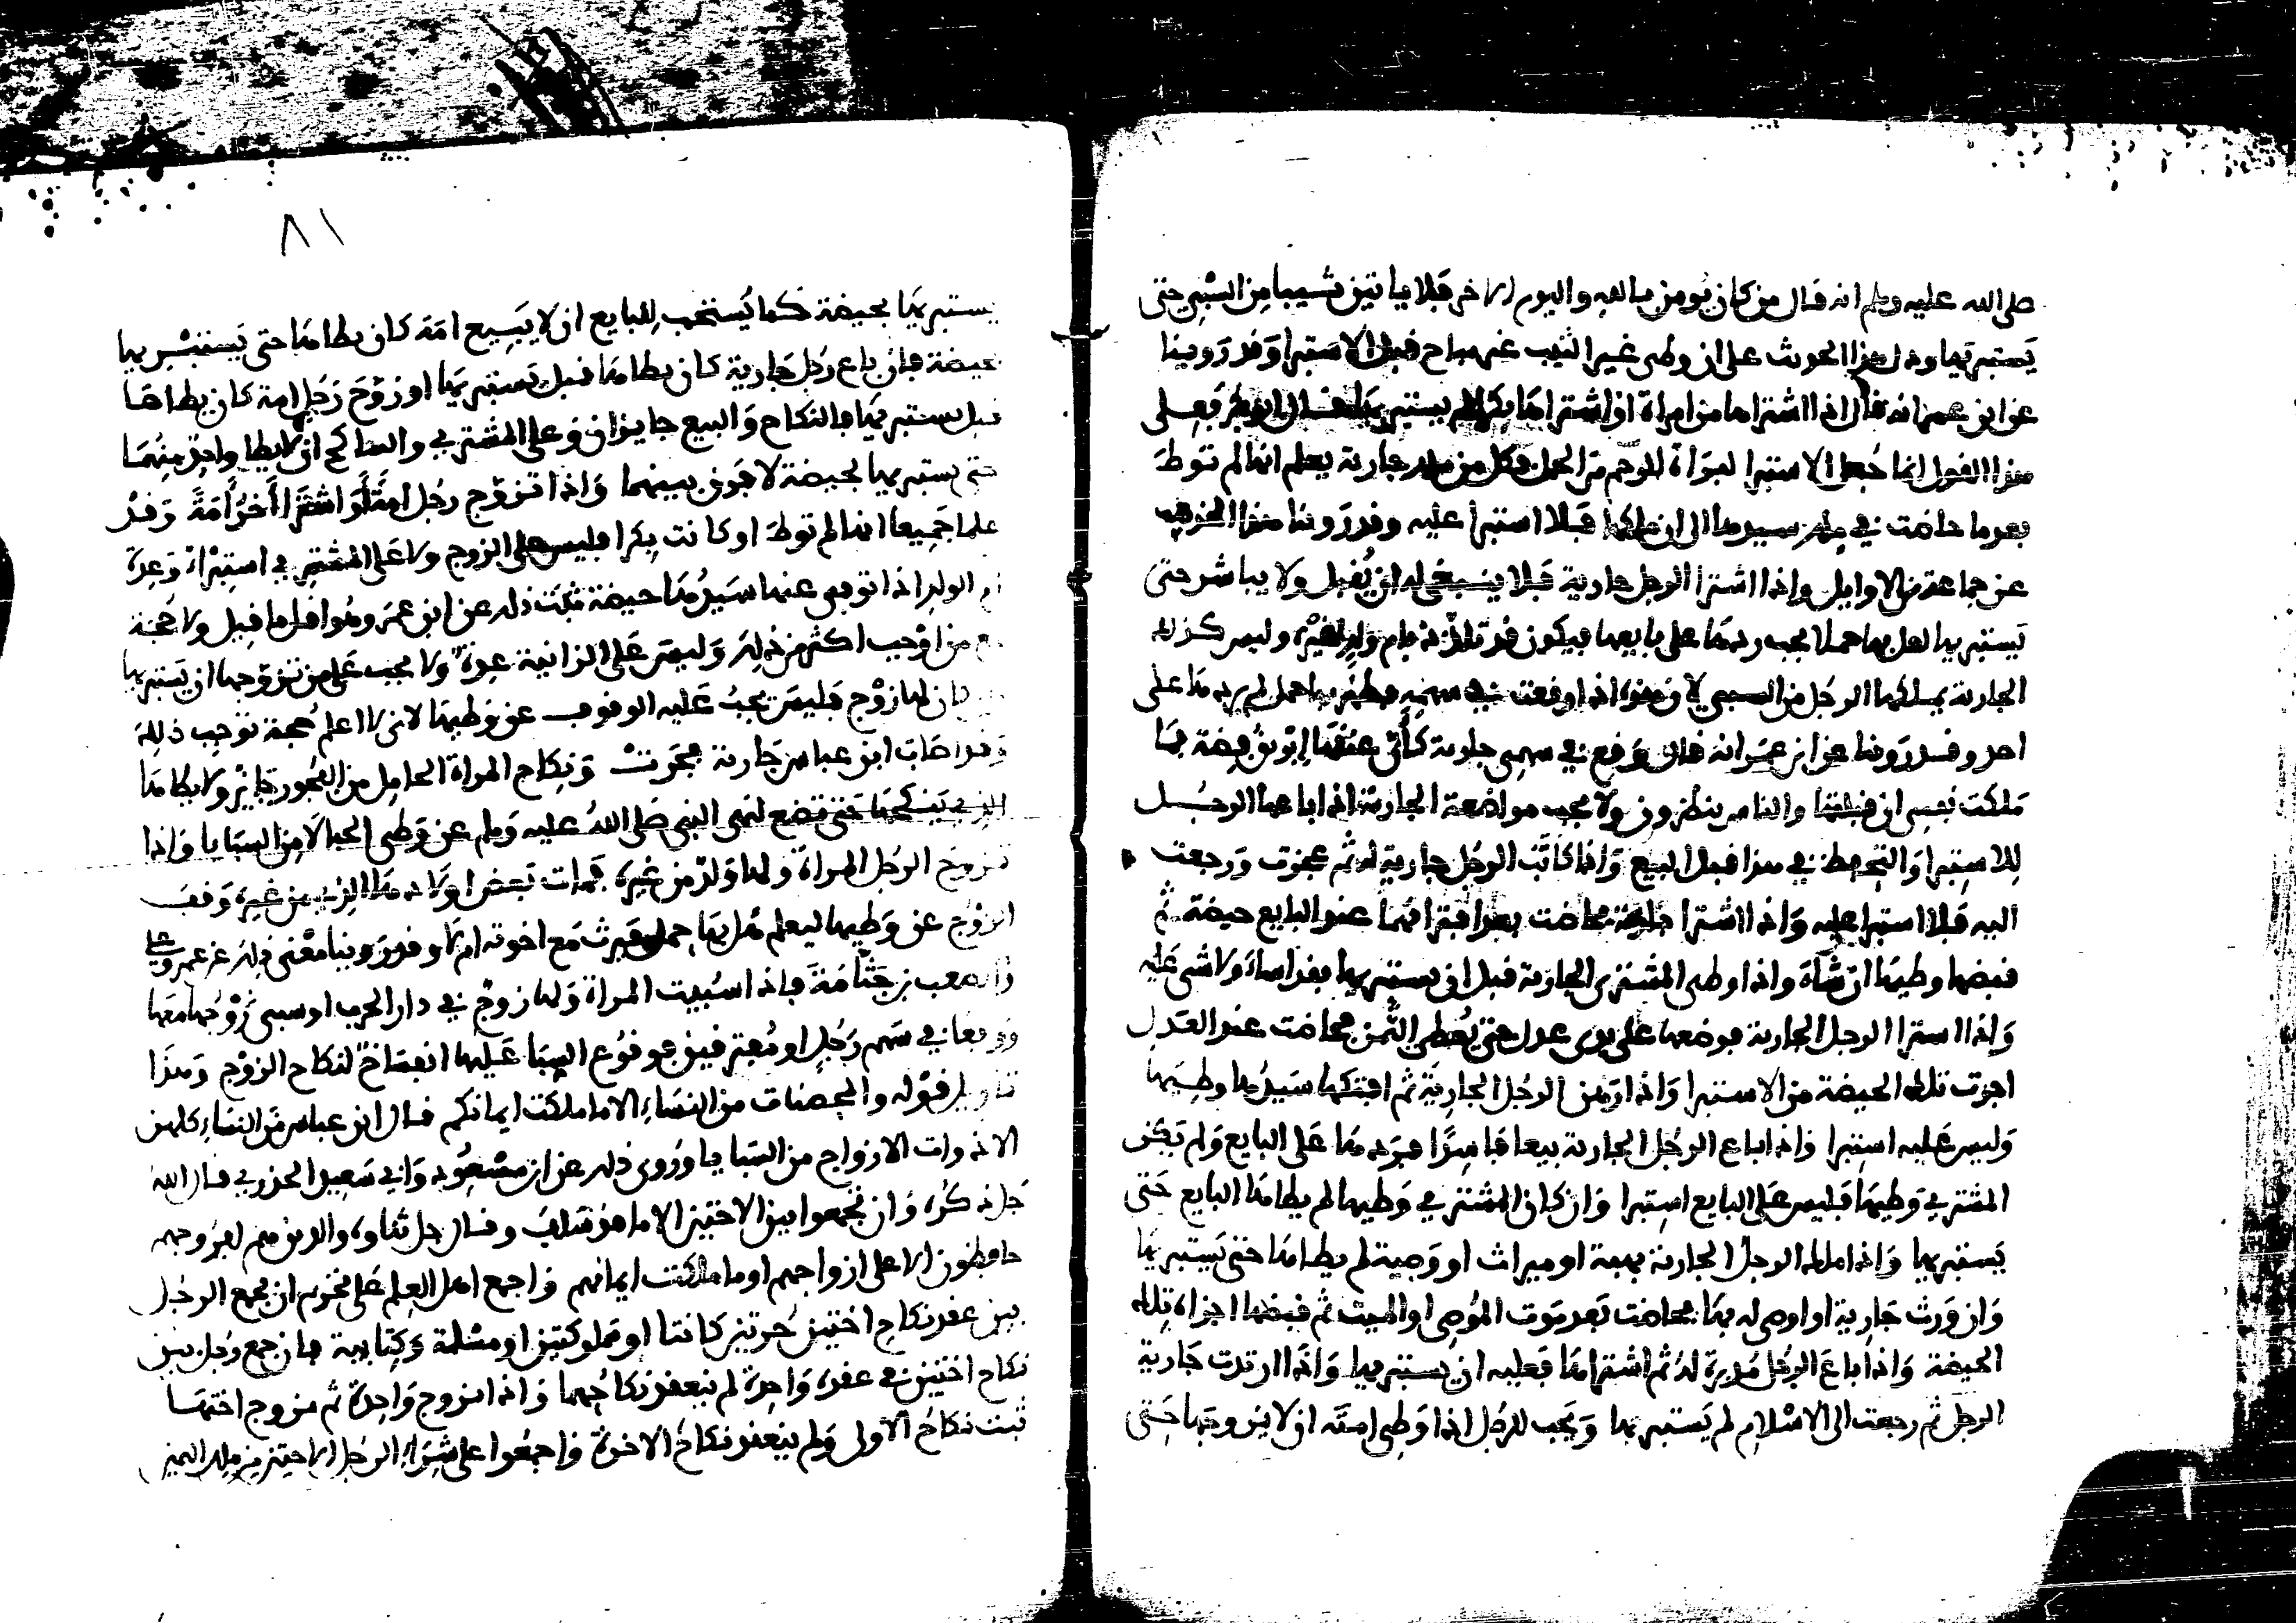 صلى الله عليه وسلم انه قال من كان يومن بالله واليوم الاخر فلا ياتين ثيبا من السبي حتى
يستبريها ودل هذا الحديث على ان وطى غير الثيب غير مباح قبل الاستبرا وقد روينا
عن ابن عمر انه قال اذا اشتراها من امراة او اشتراها بكرا لم يستبريها قال ابو بكر فعلى
هذا القول انما جعل الاستبرا لبراة الرحم من الحمل فكل من ملك جارية يعلم انها لم توطَ
بعدما حاضت في ملك سيدها الى ان ملكها فلا استبرا عليه وقد روينا هذا المذهب
عن جماعة من الاوايل واذا اشترا الرجل جارية فلا ينبغي له ان يُقبل ولا يباشر حتى
يستبريها لعل بها حملا يجب ردها على بايعها فيكون قد تلذذ بام ولد لغيره وليس كذلك
الجارية يملكها الرجل من السبي لان هذه اذا وقعت في سهمه فظهر بها حمل لم يردها على
احد وقد روينا عن ابن عمر انه قال وقع في سهمي جارية كأن عنقها ابريق فضة فما
ملكت نفسي ان قبلتها والناس ينظرون ولا يجب مواضعة الجارية اذا باعها الرجل
للاستبرا والتحفظ في هذا قبل البيع واذا كاتب الرجل جارية له ثم عجزت ورجعت
اليه فلا استبرا عليه واذا اشترا جارية فحاضت بعد افتراقهما عند البايع حيضة ثم
قبضها وطيها ان شآء واذا وطى المشتري الجارية قبل ان يستبريها فقد اساء ولا شي عليه
واذا اشترا الرجل الجارية فوضعها على يدي عدل حتى يُعطي الثمن فحاضت عند العدل
اجزت تلك الحيضة من الاستبرا واذا رهن الرجل الجارية ثم افتكها سيدها وطيها
وليس عليه استبرا واذا باع الرجل الجارية بيعا فاسدًا فردها على البايع ولم يكن
المشتري وطيها فليس على البايع استبرا وان كان المشتري وطيها لم يطاها البايع حتى
يستبريها واذا ملك الرجل الجارية بهبة او ميراث او وصية لم يطاها حتى يستبريها
وان ورث جارية او اوصى له بها فحاضت بعد موت الموصي او الميت ثم قبضها اجزاه تلك
الحيضة واذا باع الرجل مدبرة له ثم اشتراها فعليه ان يستبريها واذا ارتدت جارية
الرجل ثم رجعت الى الاسلام لم يستبريها ويجب للرجل اذا وطى امته ان لا يزوجها حتى
٨١
يستبريها بحيضة كما يُستحب للبايع ان لا يبيع امة كان يطاها حتى يستبريها
بحيضة فان باع رجل جارية كان يطاها قبل يستبريها او زوج رجل امة كان يطاها
قبل يستبريها فالنكاح والبيع جايزان وعلى المشتري والناكح ان لا يطا واحد منهما
حتى يستبريها بحيضة لا فرق بينهما واذا تزوج رجل امة او اشترا أخر أمة وقد
علما جميعا انها لم توطَ او كانت بكرا فليس على الزوج ولا على المشتري استبراء وعدة
ام الولد اذا توفي عنها سيدها حيضة ثبت ذلك عن ابن عمر وهو اقل ما قيل ولا حجة
مع من اوجب اكثر من ذلك وليس على الزانية عدة ولا يجب على من تزوجها ان يستبريها
فان لها زوج فليس يجب عليه الوقوف عن وطيها لاني لا اعلم حجة توجب ذلك
وقد اصاب ابن عباس جارية فجرت ونكاح المراة الحامل من الفجور جايز ولا يطاها
الذي ينكحها حتى تضع لنهي النبي صلى الله عليه وسلم عن وطي الحبالا من السبايا واذا
تزوج الرجل المراة ولها ولد من غيره فمات بعض اولادها الذي من غيره وقف
الزوج عن وطيها ليعلم هل بها حمل فيرث مع اخوته ام لا وقد روينا معنى ذلك عن عمر وعلي
والصعب بن جثامة فاذا سُبيت المراة ولها زوج في دار الحرب او سبي زوجها معها
ووقعا في سهم رجل او مفترقين فوقوع السبا عليها انفساخ لنكاح الزوج وهذا
تاويل قوله والمحصنات من النساء الا ما ملكت ايمانكم قال ابن عباس من النساء كلهن
الا ذوات الازواج من السبايا وروي ذلك عن ابن مسعود وابي سعيد الخدري قال الله
جل ذكره وان تجمعوا بين الاختين الا ما قد سلف وقال جل ثناوه والذين هم لفروجهم
حافظون الا على ازواجهم او ما ملكت ايمانهم واجمع اهل العلم على تحريم ان يجمع الرجل
بين عقد نكاح اختين حرتين كانتا او مملوكتين او مسلمة وكتابية فان جمع رجل بين
نكاح اختين في عقدة واحدة لم ينعقد نكاحهما واذا تزوج واحدة ثم تزوج اختها
ثبت نكاح الاولى ولم ينعقد نكاح الاخرة واجمعوا على شراء الرجل الاختين من ملك اليمين